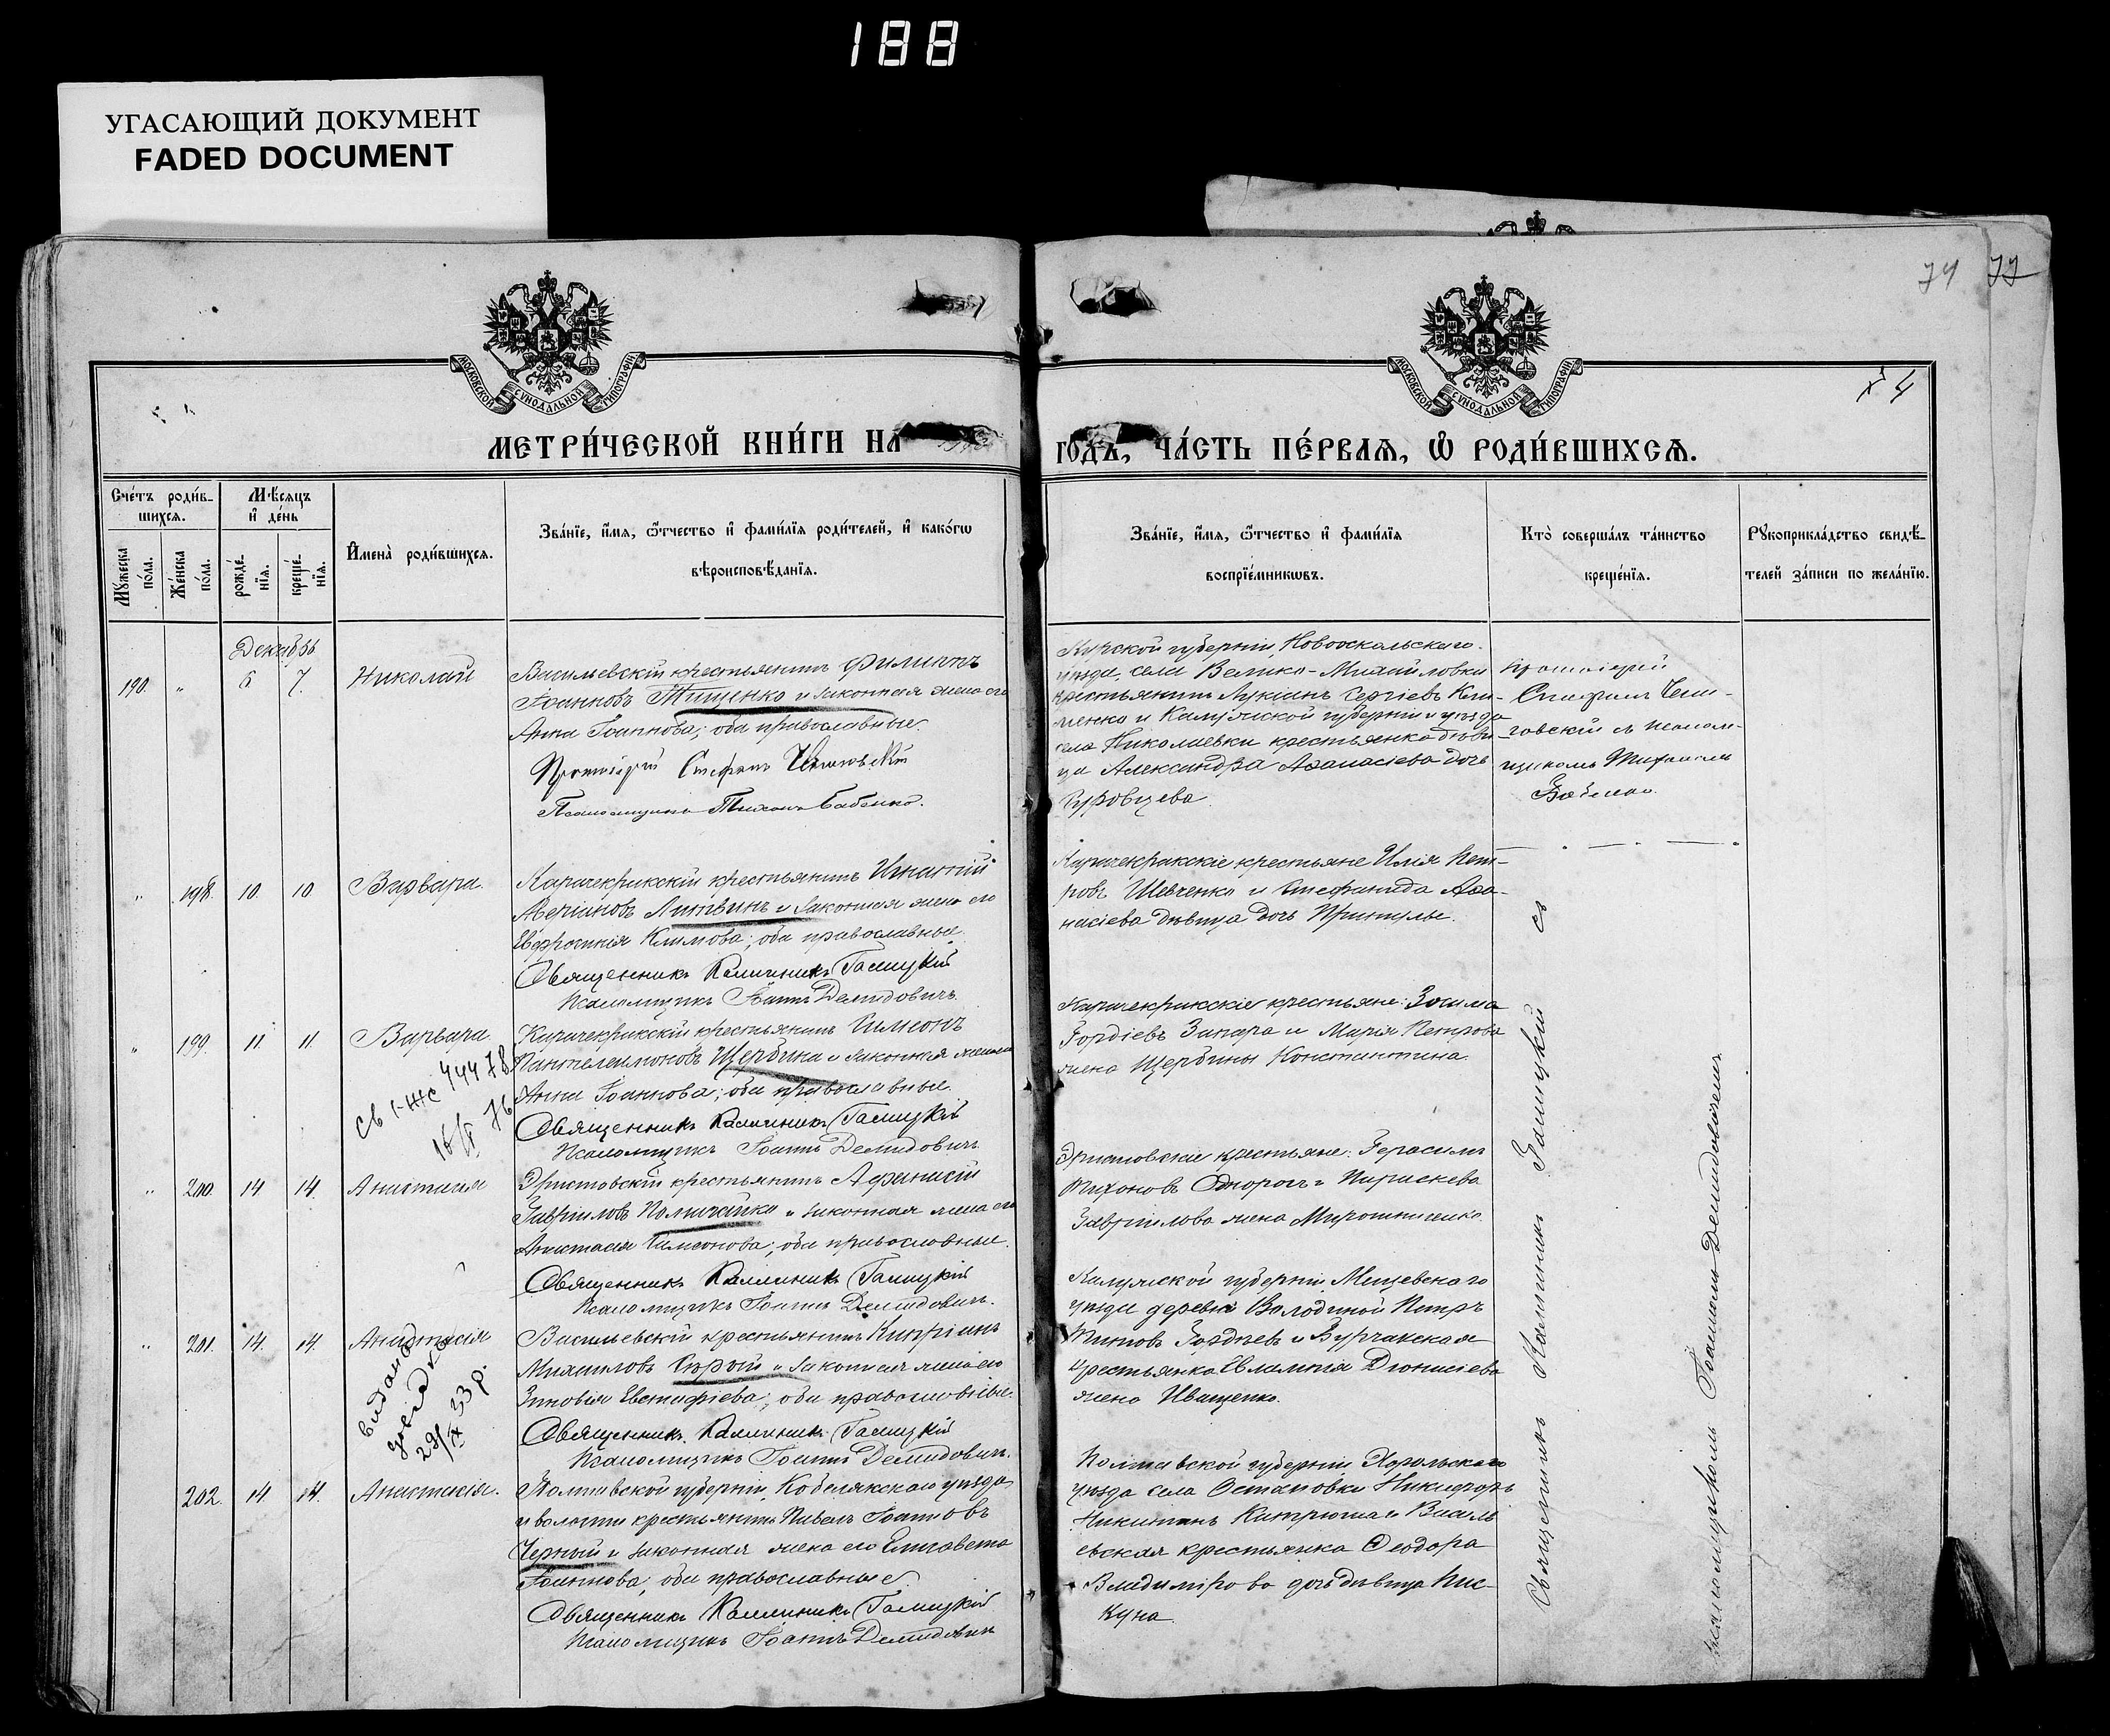 188
УГАСАЮЩИЙ ДОКУМЕНТ
FADED DOCUMENT
74 77
74
МОСКОВСКОЙ СѴНОДАЛЬНОЙ ТИПОГРАФІИ
МОСКОВСКОЙ СѴНОДАЛЬНОЙ ТИПОГРАФІИ
МЕТРИ́ЧЕСКОЙ КНИ́ГИ НА
ГОДЪ, ЧА́СТЬ ПЕ́РВАЯ, Ѿ РОДИ́ВШИХСЯ.
Сче́тъ роди́в-
шихся.
Мѣ́сяцъ
и҆ де́нь
Мꙋ́жеска по́ла.
Же́нска по́ла.
рожде́-нїя.
креще́-нїя.
И҆мена̀ роди́вшихся.
Зва́нїе, и҆́мя, ѻ҆́тчество и҆ фами́лїя роди́телей, и҆ како́гѡ
вѣроисповѣ́данїя.
Зва́нїе, и҆́мя, ѻ҆́тчество и҆ фами́лїя
воспрїе́мникѡвъ.
Кто̀ соверша́лъ та́инство
креще́нїя.
Рꙋкоприкла́дство свидѣ́-
телей за́писи по жела́нїю.
Декабрь
190. " 6 7. Николай
Васильевскій крестьянинъ Филиппъ
Іоанновъ Тищенко и законная жена его
Анна Іоаннова; оба православные.
Протоіерей Стефанъ
Псаломщикъ Тихонъ Бабенко.
Курской губерніи, Новооскольскаго
уѣзда, села Велико-Михайловки
крестьянинъ Лукіанъ Сергіевъ Кли-
менко и Калужской губерніи и уѣзда
села Николаевки крестьянка дѣви-
ца Александра Аѳанасіева дочь
Суровцева.
Протоіерей
Стефанъ
говскій съ псалом-
щикомъ Тихономъ
Бабенко.
" 198. 10. 10. Варвара.
Карачекракскій крестьянинъ Игнатій
Аверіановъ Литвинъ и законная жена его
Евфросинія Климова; оба православные.
Священникъ Каллиникъ Галицкій
Псаломщикъ Іоаннъ Демидовичъ.
Карачекракскіе крестьяне Илія Пет-
ровъ Шевченко и Стефанида Аѳа-
насіева дѣвица дочь Притулы.
" 199. 11. 11. Варвара
Карачекракскій крестьянинъ Симеонъ
Пантелеимоновъ Щербина и законная жена его
Анна Іоаннова; оба православные.
Священникъ Каллиникъ Галицкій
Псаломщикъ Іоаннъ Демидовичъ.
Св І-ЖС 444781
16/ІІ 76
Карачекракскіе крестьяне: Зосима
Гордіевъ Запара и Марія Петрова
жена Щербины Константина.
" 200. 14 14. Анастасія
Эристовскій крестьянинъ Аѳанасій
Гавріиловъ Поличайко и законная жена его
Анастасія Симеонова; оба православные.
Священникъ Каллиникъ Галицкій
Псаломщикъ Іоаннъ Демидовичъ.
Эристовскіе крестьяне: Герасимъ
Тихоновъ Однорогъ и Параскева
Гавріилова жена Мирошниченко.
" 201. 14. 14. Анастасія
Васильевскій крестьянинъ Кипріанъ
Михаиловъ Сѣрый и законная жена его
Зиновія Евстафіева; оба православные.
Священникъ Каллиникъ Галицкій
Псаломщикъ Іоаннъ Демидовичъ.
видана
довідка
29/ІХ 33 р.
Калужской губерніи, Мещовскаго
уѣзда деревни Володиной Петръ
Титовъ Гордѣевъ и Бурчакская
крестьянка Евлампія Діонисіева
жена Иващенко.
202. 14. 14. Анастасія.
Полтавской губерніи, Кобелякскаго уѣзда
и волости крестьянинъ Павелъ Іоанновъ
Черный и законная жена его Елисавета
Іоаннова, оба православные.
Священникъ Каллиникъ Галицкій
Псаломщикъ Іоаннъ Демидовичъ
Полтавской губерніи Хорольскаго
уѣзда села Остаповки Никифоръ
Никитинъ и Василь
евская крестьянка Ѳеодора
Владимірова дочь дѣвица Пис-
куна.
Священникъ Каллиникъ Галицкій съ
псаломщикомъ Іоанномъ Демидовичемъ